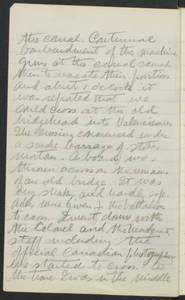 the canal. Continual
bombardment of the machine
guns at the canal caused
them to vacate their position
and about 8 o'clock it
was reported that we
could cross at the old
bridgehead into Valenciennes
The crossing commenced under
a smoke barrage of stokes
mortars. A board was
thrown across on the remains
of an old bridge. It was
very shaky and hard
was given to the battalion
to cross. I went down with
the Colonel and the Headquarters
staff including the
official Canadian photographer
We started to cross. At
the time I was in the middle